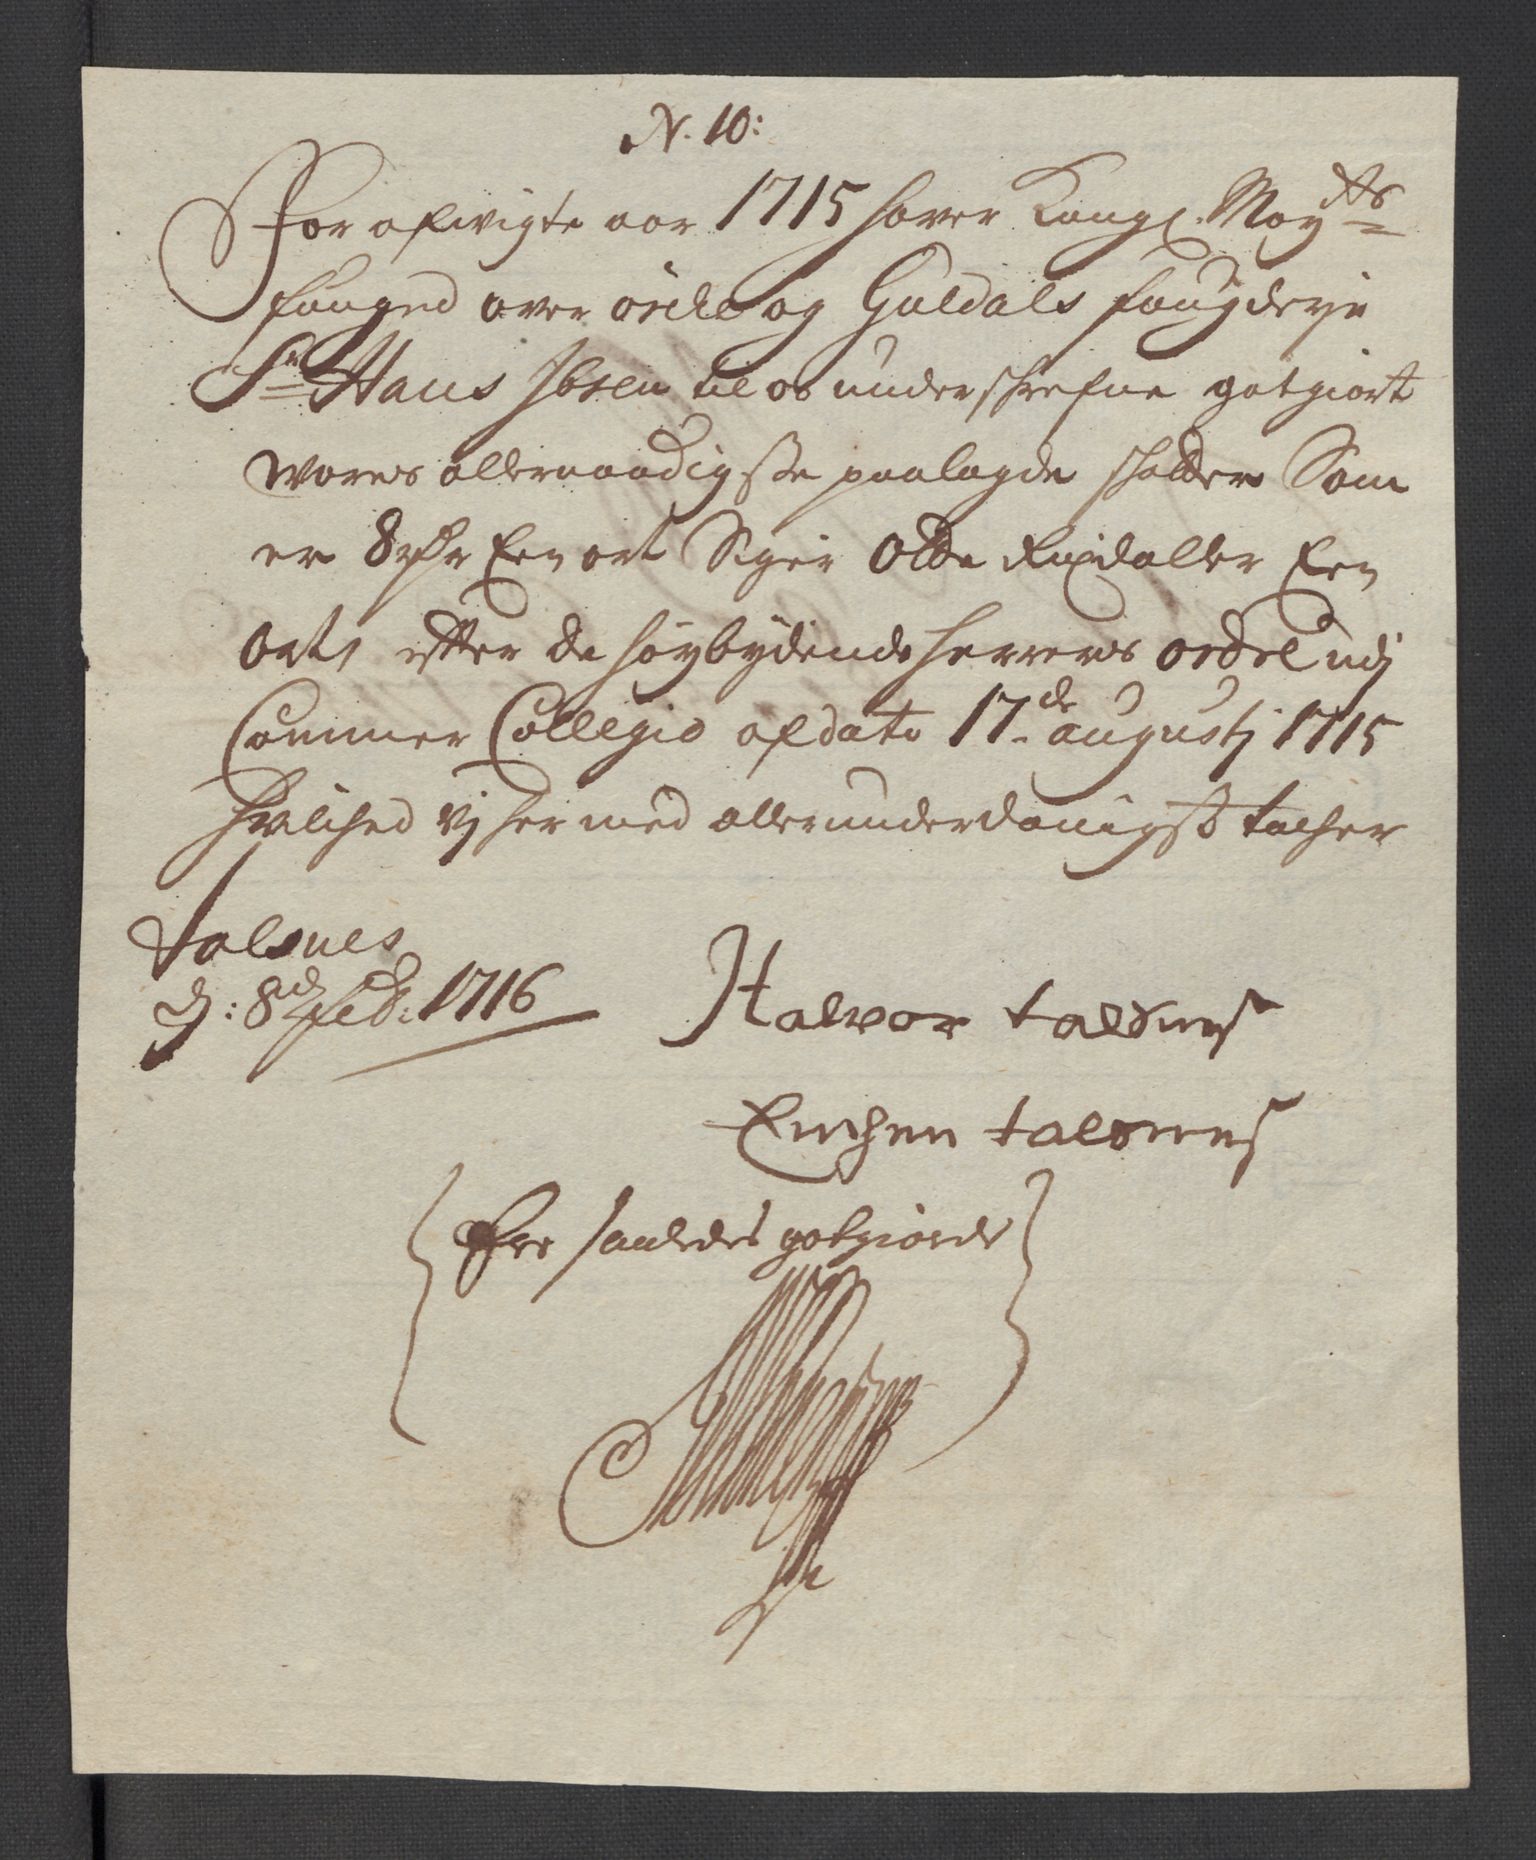 N. 10:
For afwigte aar 1715 hafver Kongl. May.tts
fouged over orche og Guldals fougderje
Sr. Hans Ibsen til os underschrefne gotgiort
vores allernaadigste paalagde schatter Som
er 8 rdr Een ort Siger Otte Rixdaller Een
ort, efter de høybydende herrers ordre udj
Cammer Collegio af dato 17de augustj 1715
hvilched vj hermed allerunderdanigst tacher
talsnes
d: 8de feb: 1716
Halvor talsnes
Erichen talsnes
Er saaledes gotgiordt